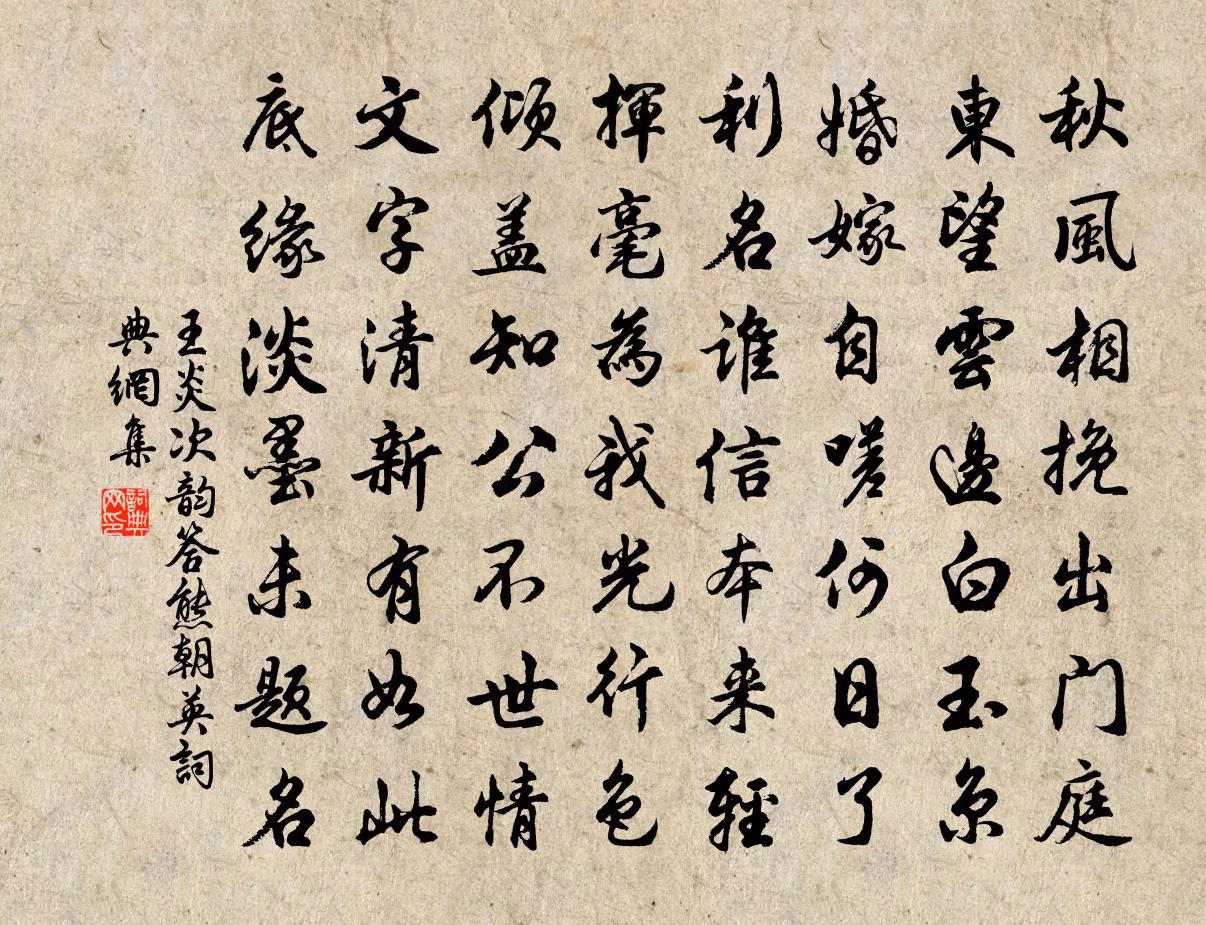 秋風相挽出門庭
東望雲邊白玉京
婚嫁自嗟何日了
利名誰信本来輕
揮毫為我光行色
傾盖知公不世情
文字清新有如此
底緣淡墨未題名
王炎次韵答熊朝英詞
典網集
詞典
网印